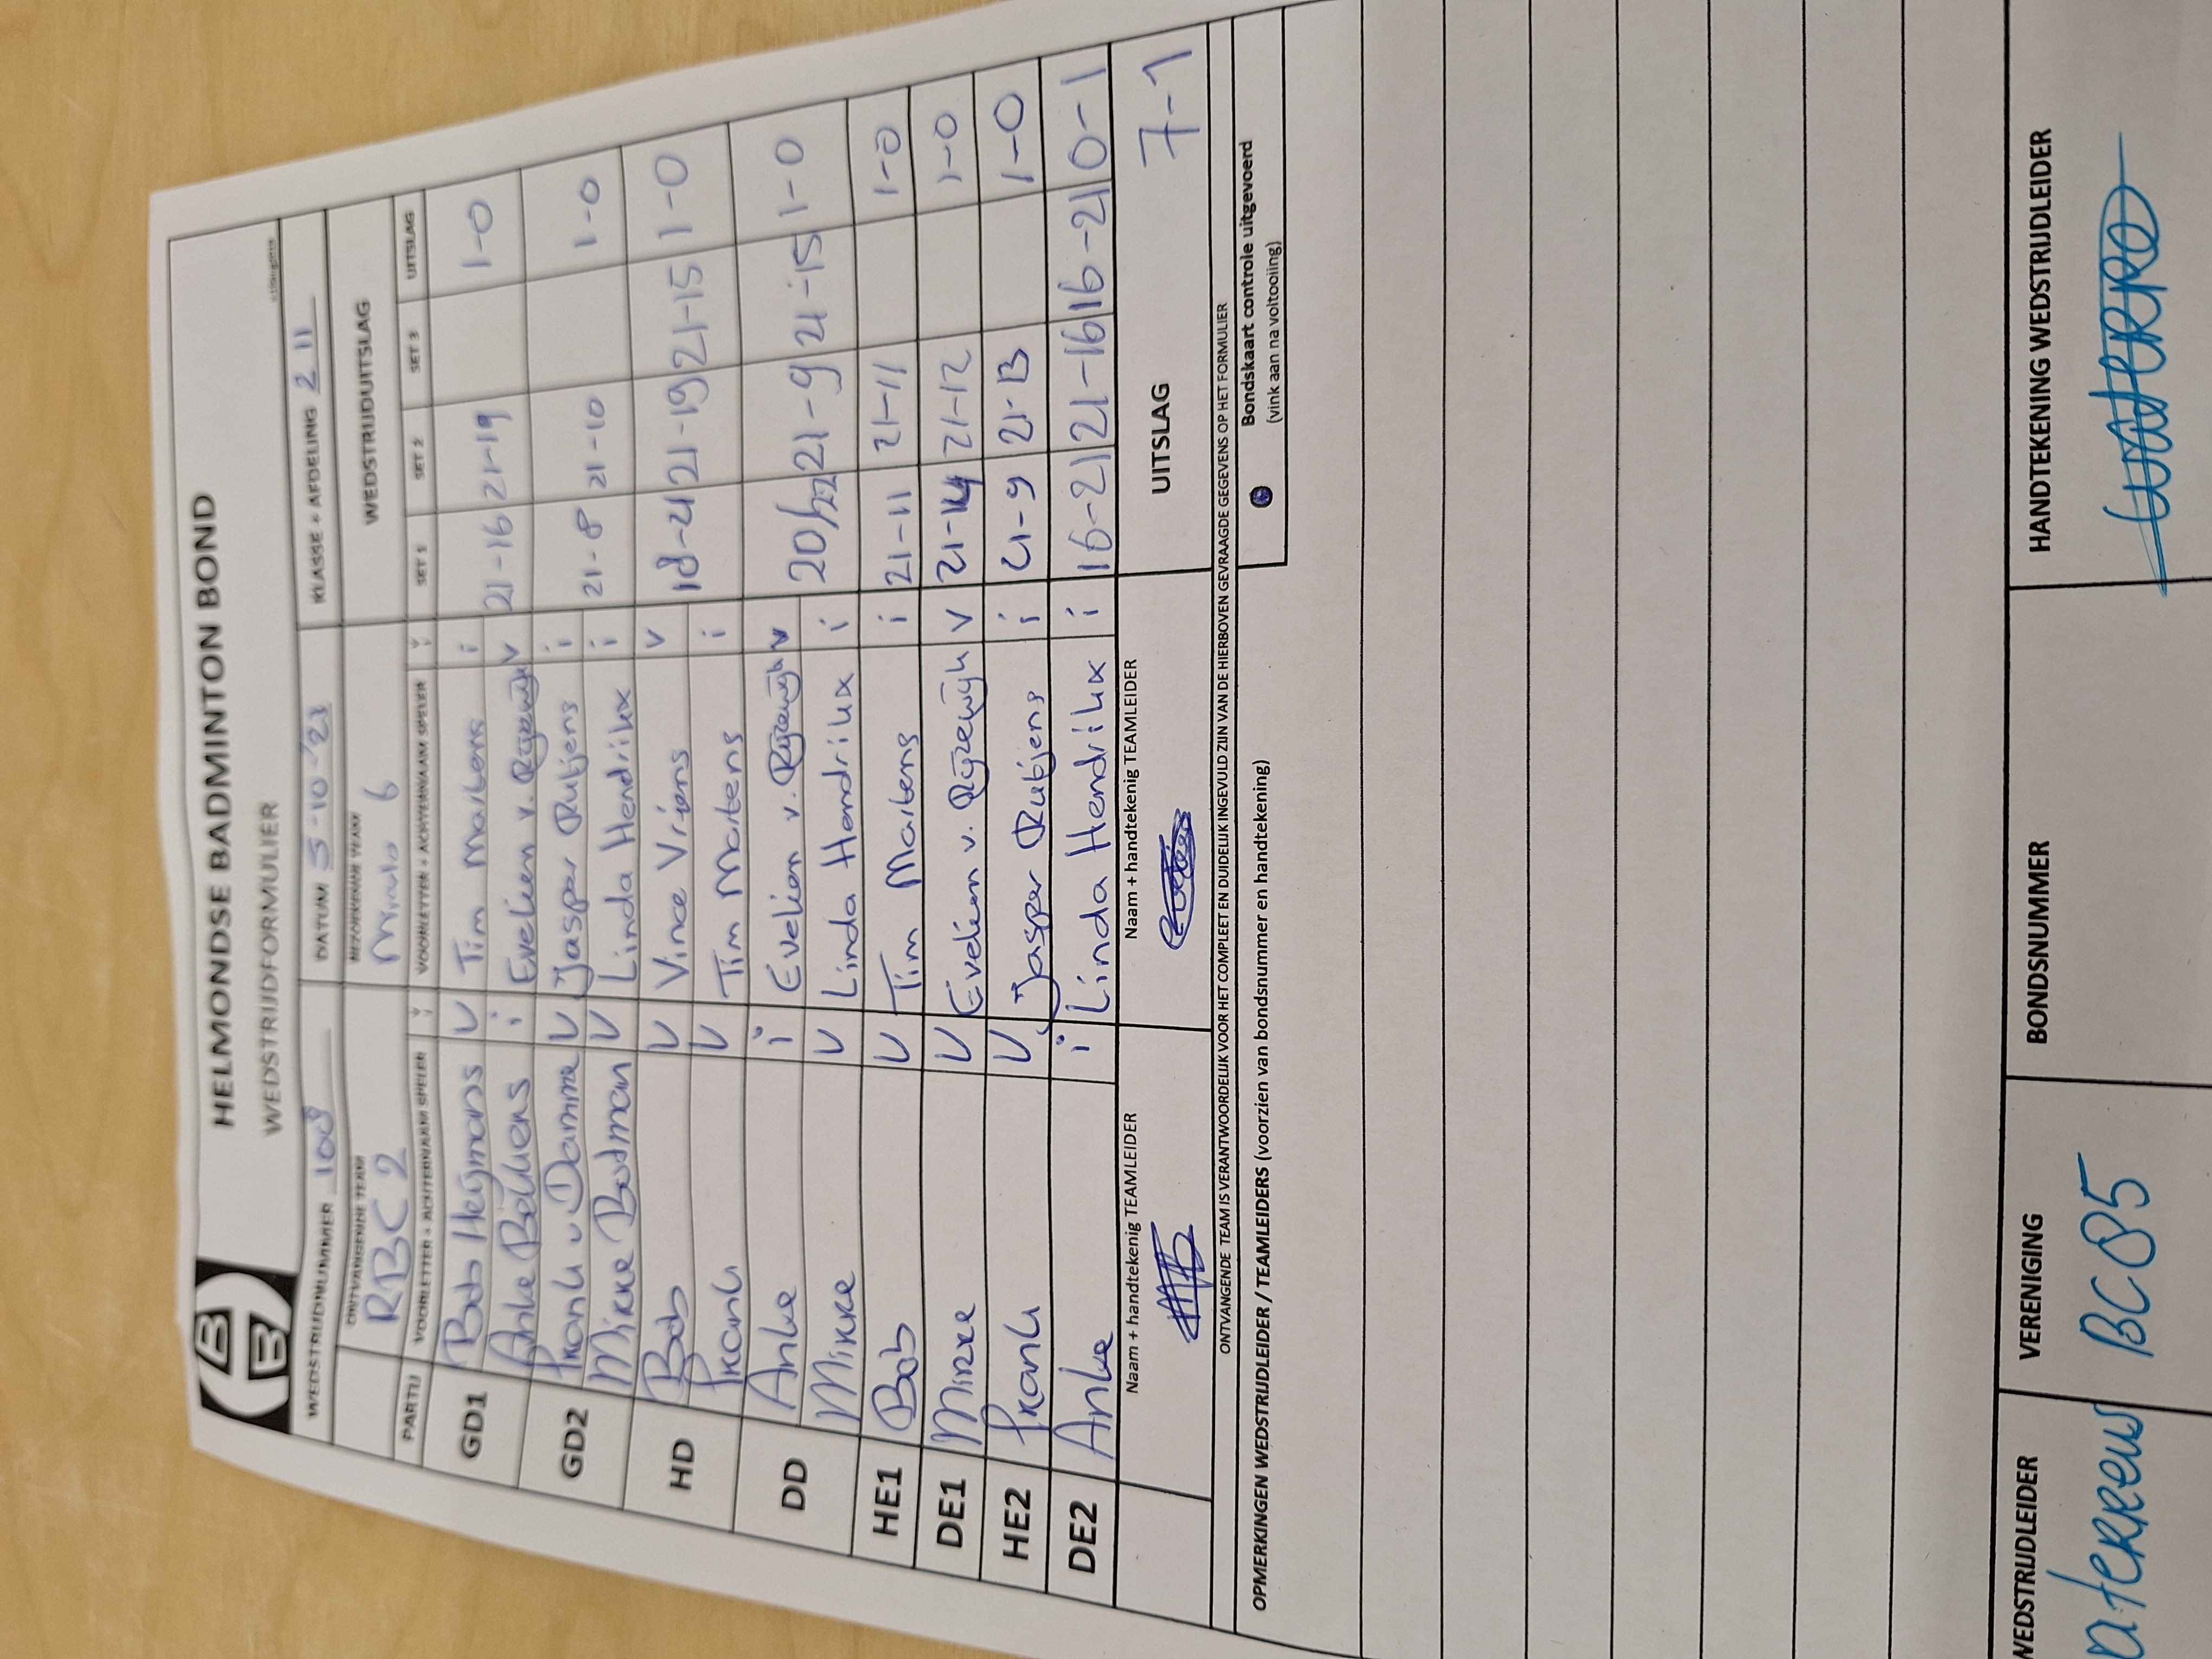 HELMONDSE BADMINTON BOND
WEDSTRIJDFORMULIER
WEDSTRIJDNUMMER 108 DATUM 5-10-'21 KLASSE + AFDELING 2 11
ONTVANGENDE TEAM BEZOEKENDE TEAM WEDSTRIJDUITSLAG
RBC 2 Mirulo 6
PARTIJ VOORLETTER + ACHTERNAAM SPELER VOORLETTER + ACHTERNAAM SPELER SET 1 SET 2 SET 3 UITSLAG
GD1 Bob Heijmans V Tim Martens i 21-16 21-19 1-0
Anke Bekkens i Evelien v. Rijzewijk V
GD2 Frank v Damme V Jasper Rutjens i 21-8 21-10 1-0
Mirre Bodman V Linda Hendrikx i
HD Bob V Vince Vriens V 18-21 21-19 21-15 1-0
Frank V Tim Martens i
DD Anke i Evelien v. Rijzewijk V 20/22 21-9 21-15 1-0
Mirre V Linda Hendrikx i
HE1 Bob V Tim Martens i 21-11 21-11 1-0
DE1 Mirre V Evelien v. Rijzewijk V 21-14 21-12 1-0
HE2 Frank V Jasper Rutjens i 21-9 21-13 1-0
DE2 Anke i Linda Hendrikx i 16-21 21-16 16-21 0-1
Naam + handtekenig TEAMLEIDER Naam + handtekenig TEAMLEIDER UITSLAG 7-1
ONTVANGENDE TEAM IS VERANTWOORDELIJK VOOR HET COMPLEET EN DUIDELIJK INGEVULD ZIJN VAN DE HIERBOVEN GEVRAAGDE GEGEVENS OP HET FORMULIER
OPMERKINGEN WEDSTRIJDLEIDER / TEAMLEIDERS (voorzien van bondsnummer en handtekening)
Bondskaart controle uitgevoerd
(vink aan na voltooiing)
WEDSTRIJDLEIDER VERENIGING BONDSNUMMER HANDTEKENING WEDSTRIJDLEIDER
BC85